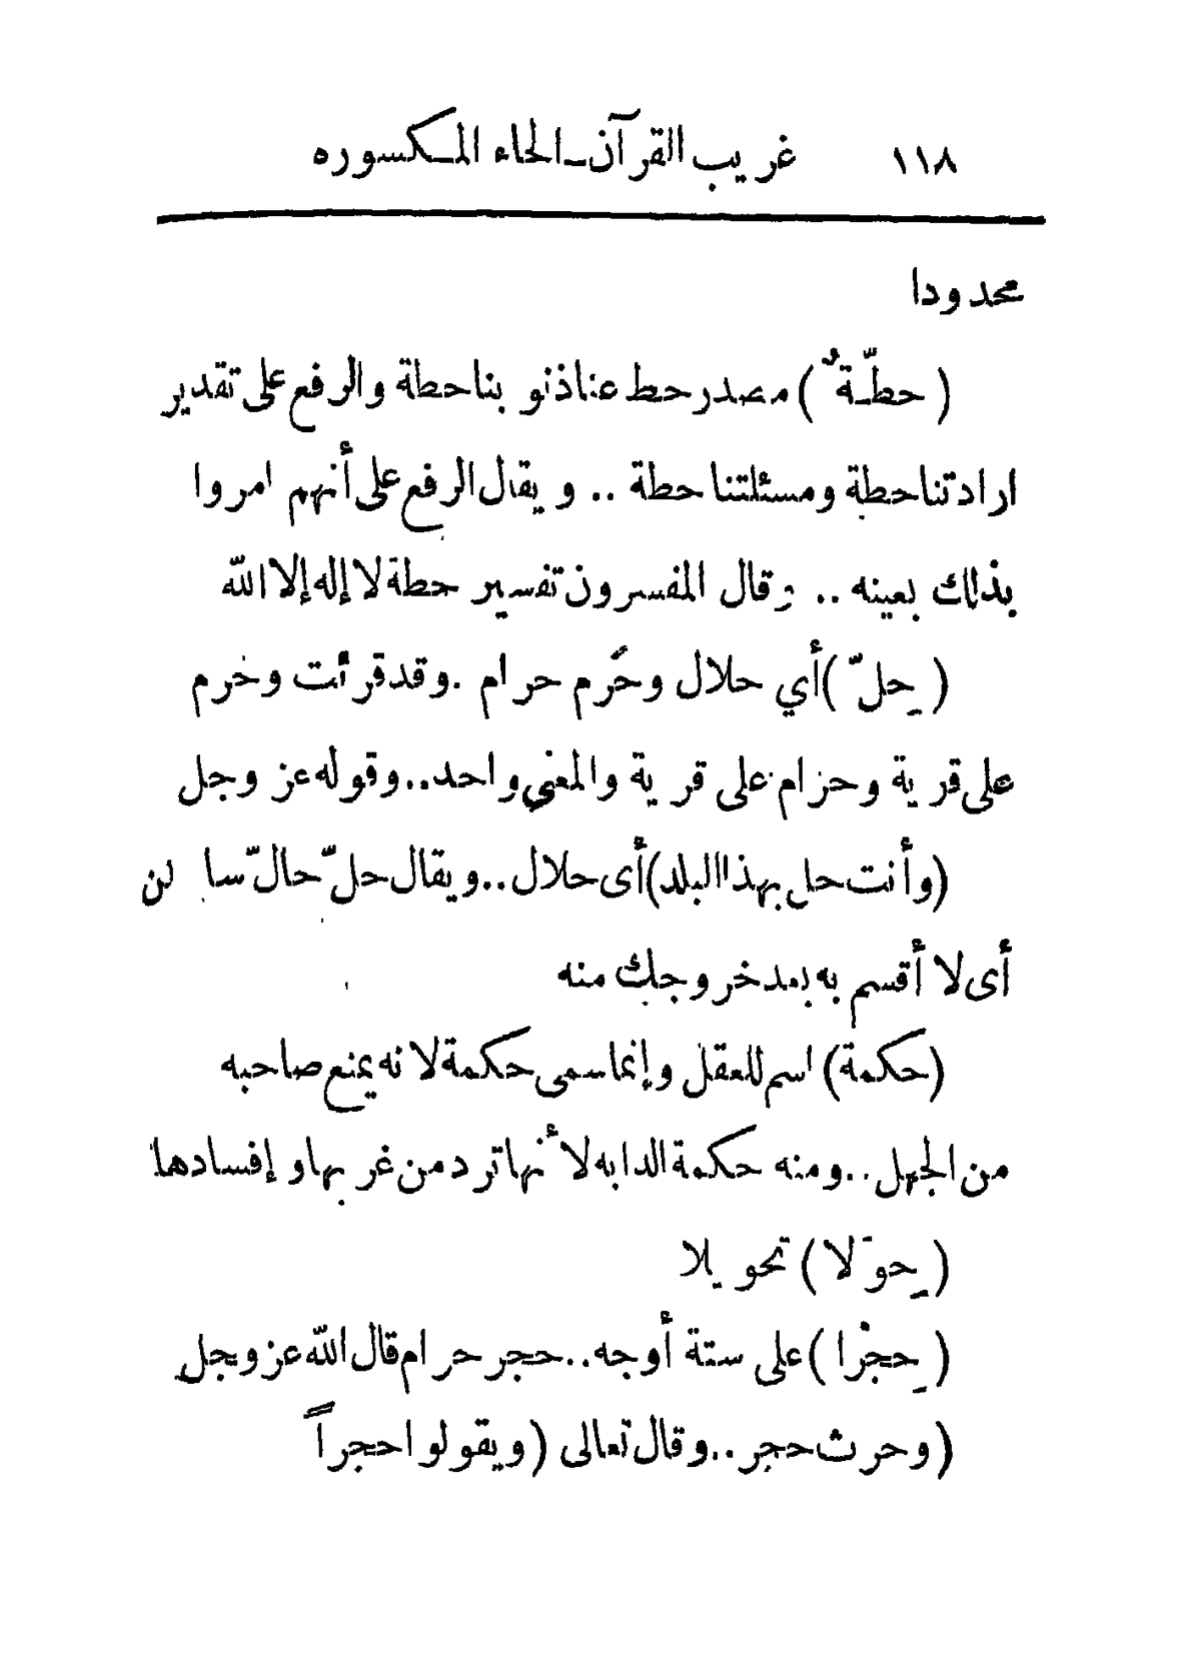 ١١٨ غريب القرآن_الحاء المكسوره
محدودا
( حطّةٌ ) مصدر حط عنا ذنوبنا حطة والرفع على تقدير
ارادتنا حطة ومسئلتنا حطة .. ويقال الرفع على أنهم امروا
بذلك بعينه .. وقال المفسرون تفسير حطة لا إله إلا الله
( حِلّ ) أي حلال وحَرم حرام . وقد قرأت وحرم
على قرية وحرام على قرية والمعنى واحد .. وقوله عز وجل
(وأنت حل بهذا البلد) أى حلال .. ويقال حلّ حالّ سا لن
أى لا أقسم به بعد خروجك منه
(حكمة) اسم للعقل وإنما سمى حكمة لانه يمنع صاحبه
من الجهل .. ومنه حكمة الدابه لأنها ترد من غربها وإفسادها
( حِوَلا ) تحويلا
( حِجْرا ) على ستة أوجه .. حجر حرام قال الله عز وجل
(وحرث حجر .. وقال تعالى (ويقولوا حجراً